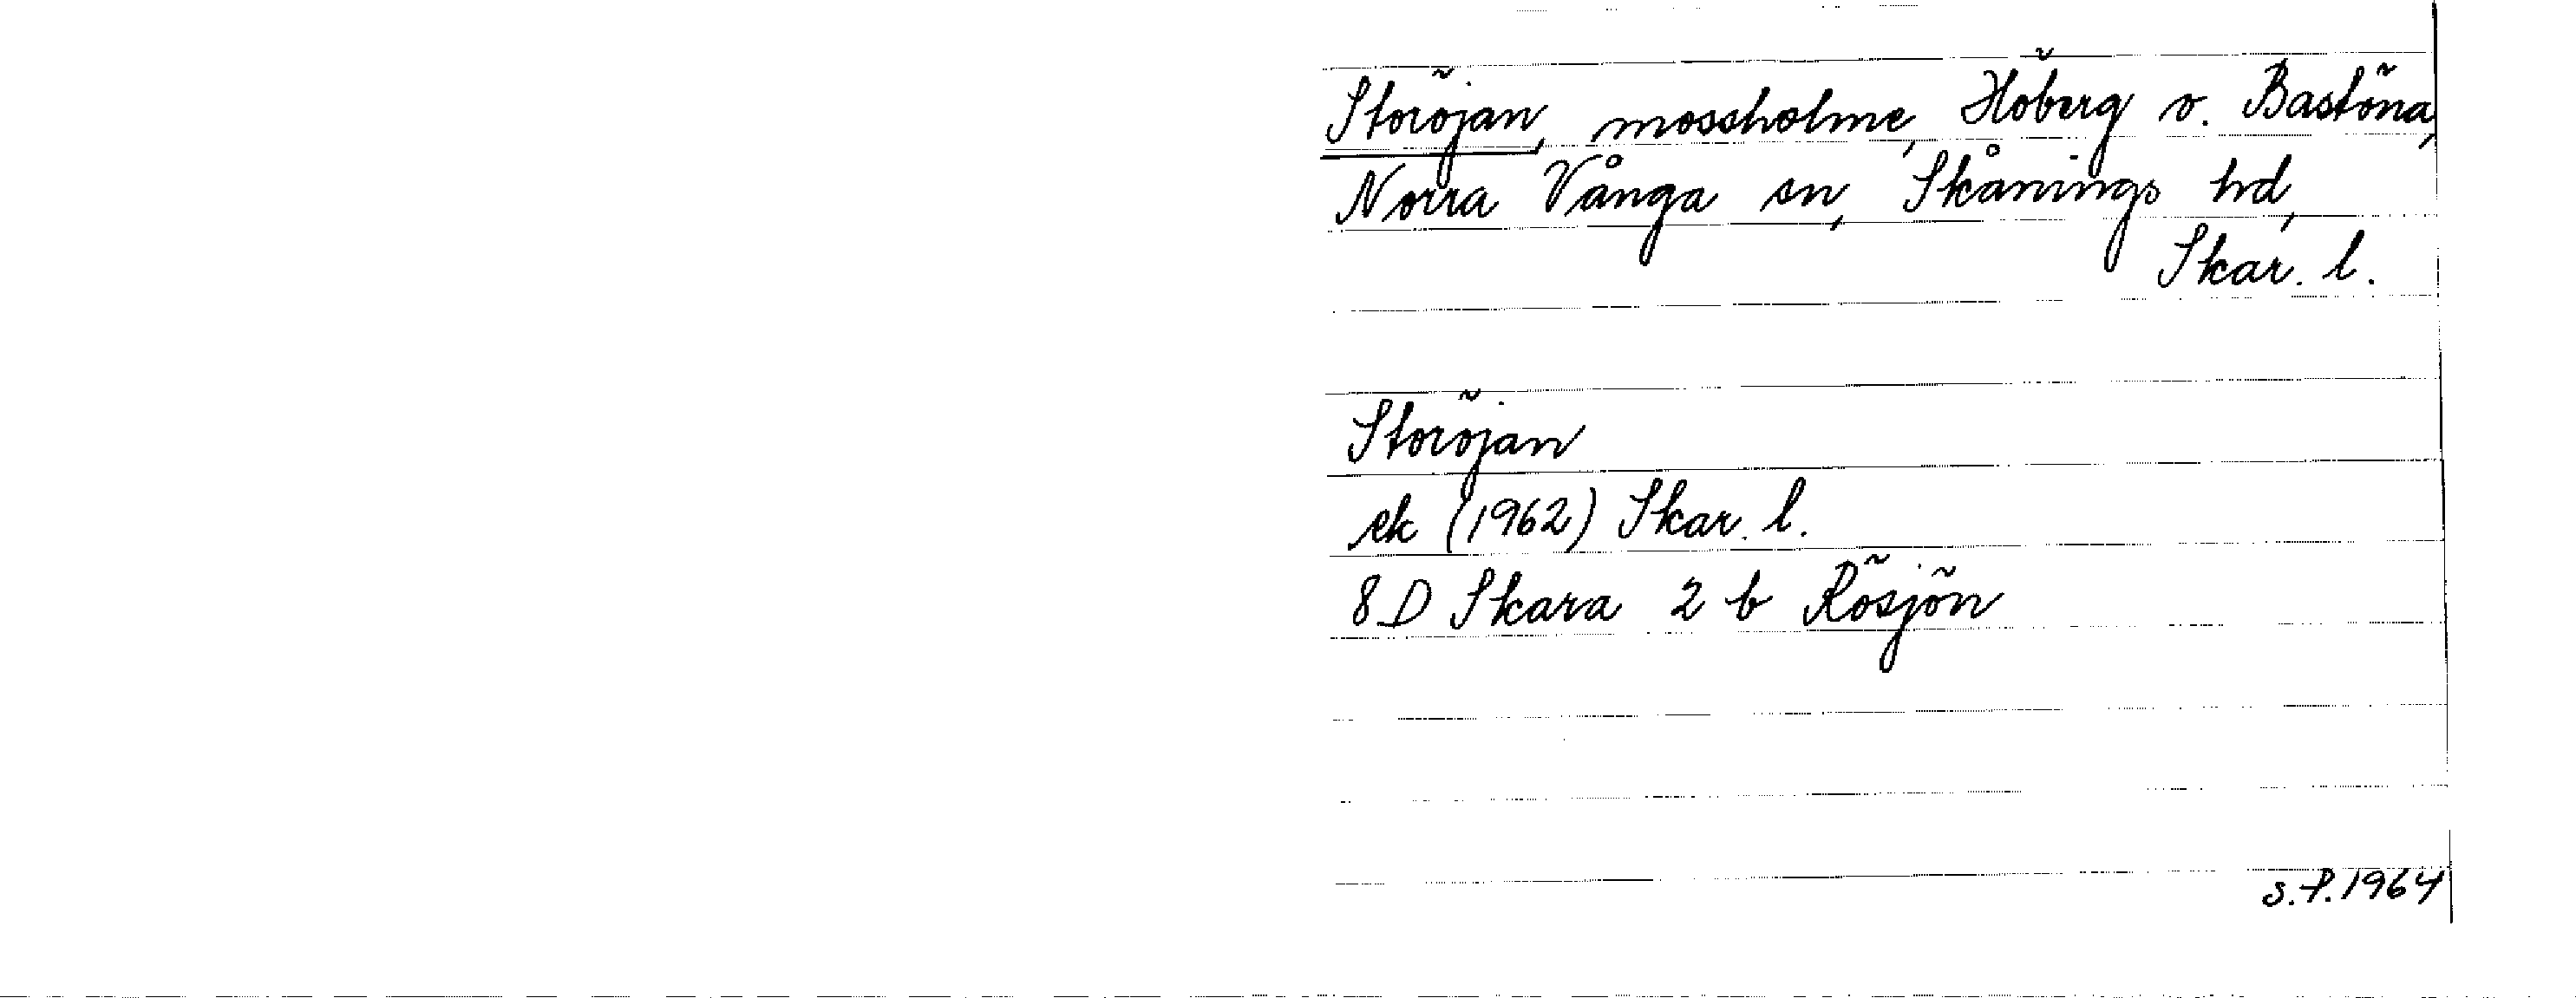 Storöjan, mossholme, Höberg o. Bastöna,
Norra Vånga sn, Skånings hd,
Skar. l.
Storöjan
ek (1962) Skar. l.
8 D Skara 2 b Rösjön
S.P. 1964